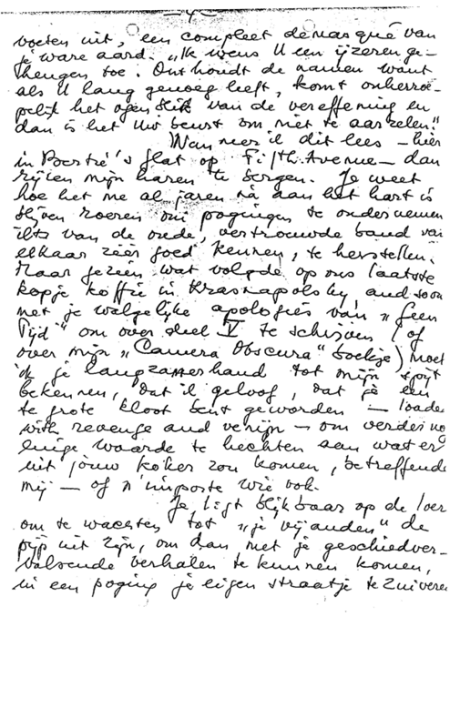 — 4 —
voeten uit, een compleet demasqué van
je ware aard. "Ik wens U een ijzeren ge-
heugen toe. Onthoudt de namen want
als U lang genoeg leeft, komt onherroe-
pelijk het ogenblik van de vereffening en
dan is het Uw beurt om niet te aarzelen."
Wanneer ik dit lees — hier
in Poestré's flat op Fifth Avenue — dan
rijzen mijn haren te bergen. Je weet
hoe het me al jaren na aan het hart is
blijven roeren om pogingen te ondernemen
iets van de oude, vertrouwde band van
elkaar zéér goed kennen, te herstellen.
Maar gezien wat volgde op ons laatste
kopje koffie in Krasnapolsky and soon
met je walgelijke apologies van "geen
Tijd" om over deel V te schrijven (of
over mijn "Camera Obscura" boekje) moet
ik je langzamerhand tot mijn spijt
bekennen, dat ik geloof, dat je een
te grote kloot bent geworden — loaded
with revenge and venijn — om verder nog
enige waarde te hechten aan wat er
uit jouw koker zou komen, betreffende
mij — of n'importe wie ook.
Je ligt blijkbaar op de loer
om te wachten tot "je vijanden" de
pijp uit zijn, om dan met je geschiedver-
valsende verhalen te kunnen komen,
in een poging je eigen straatje te zuiveren